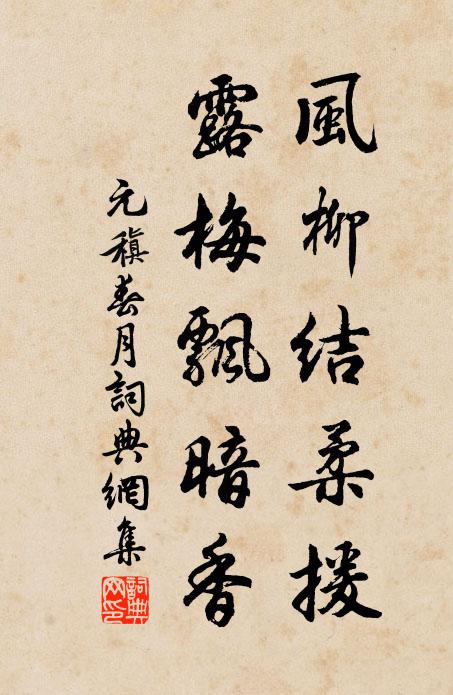 風柳結柔援
露梅飄暗香
元稹春月詞典網集
詞典網印